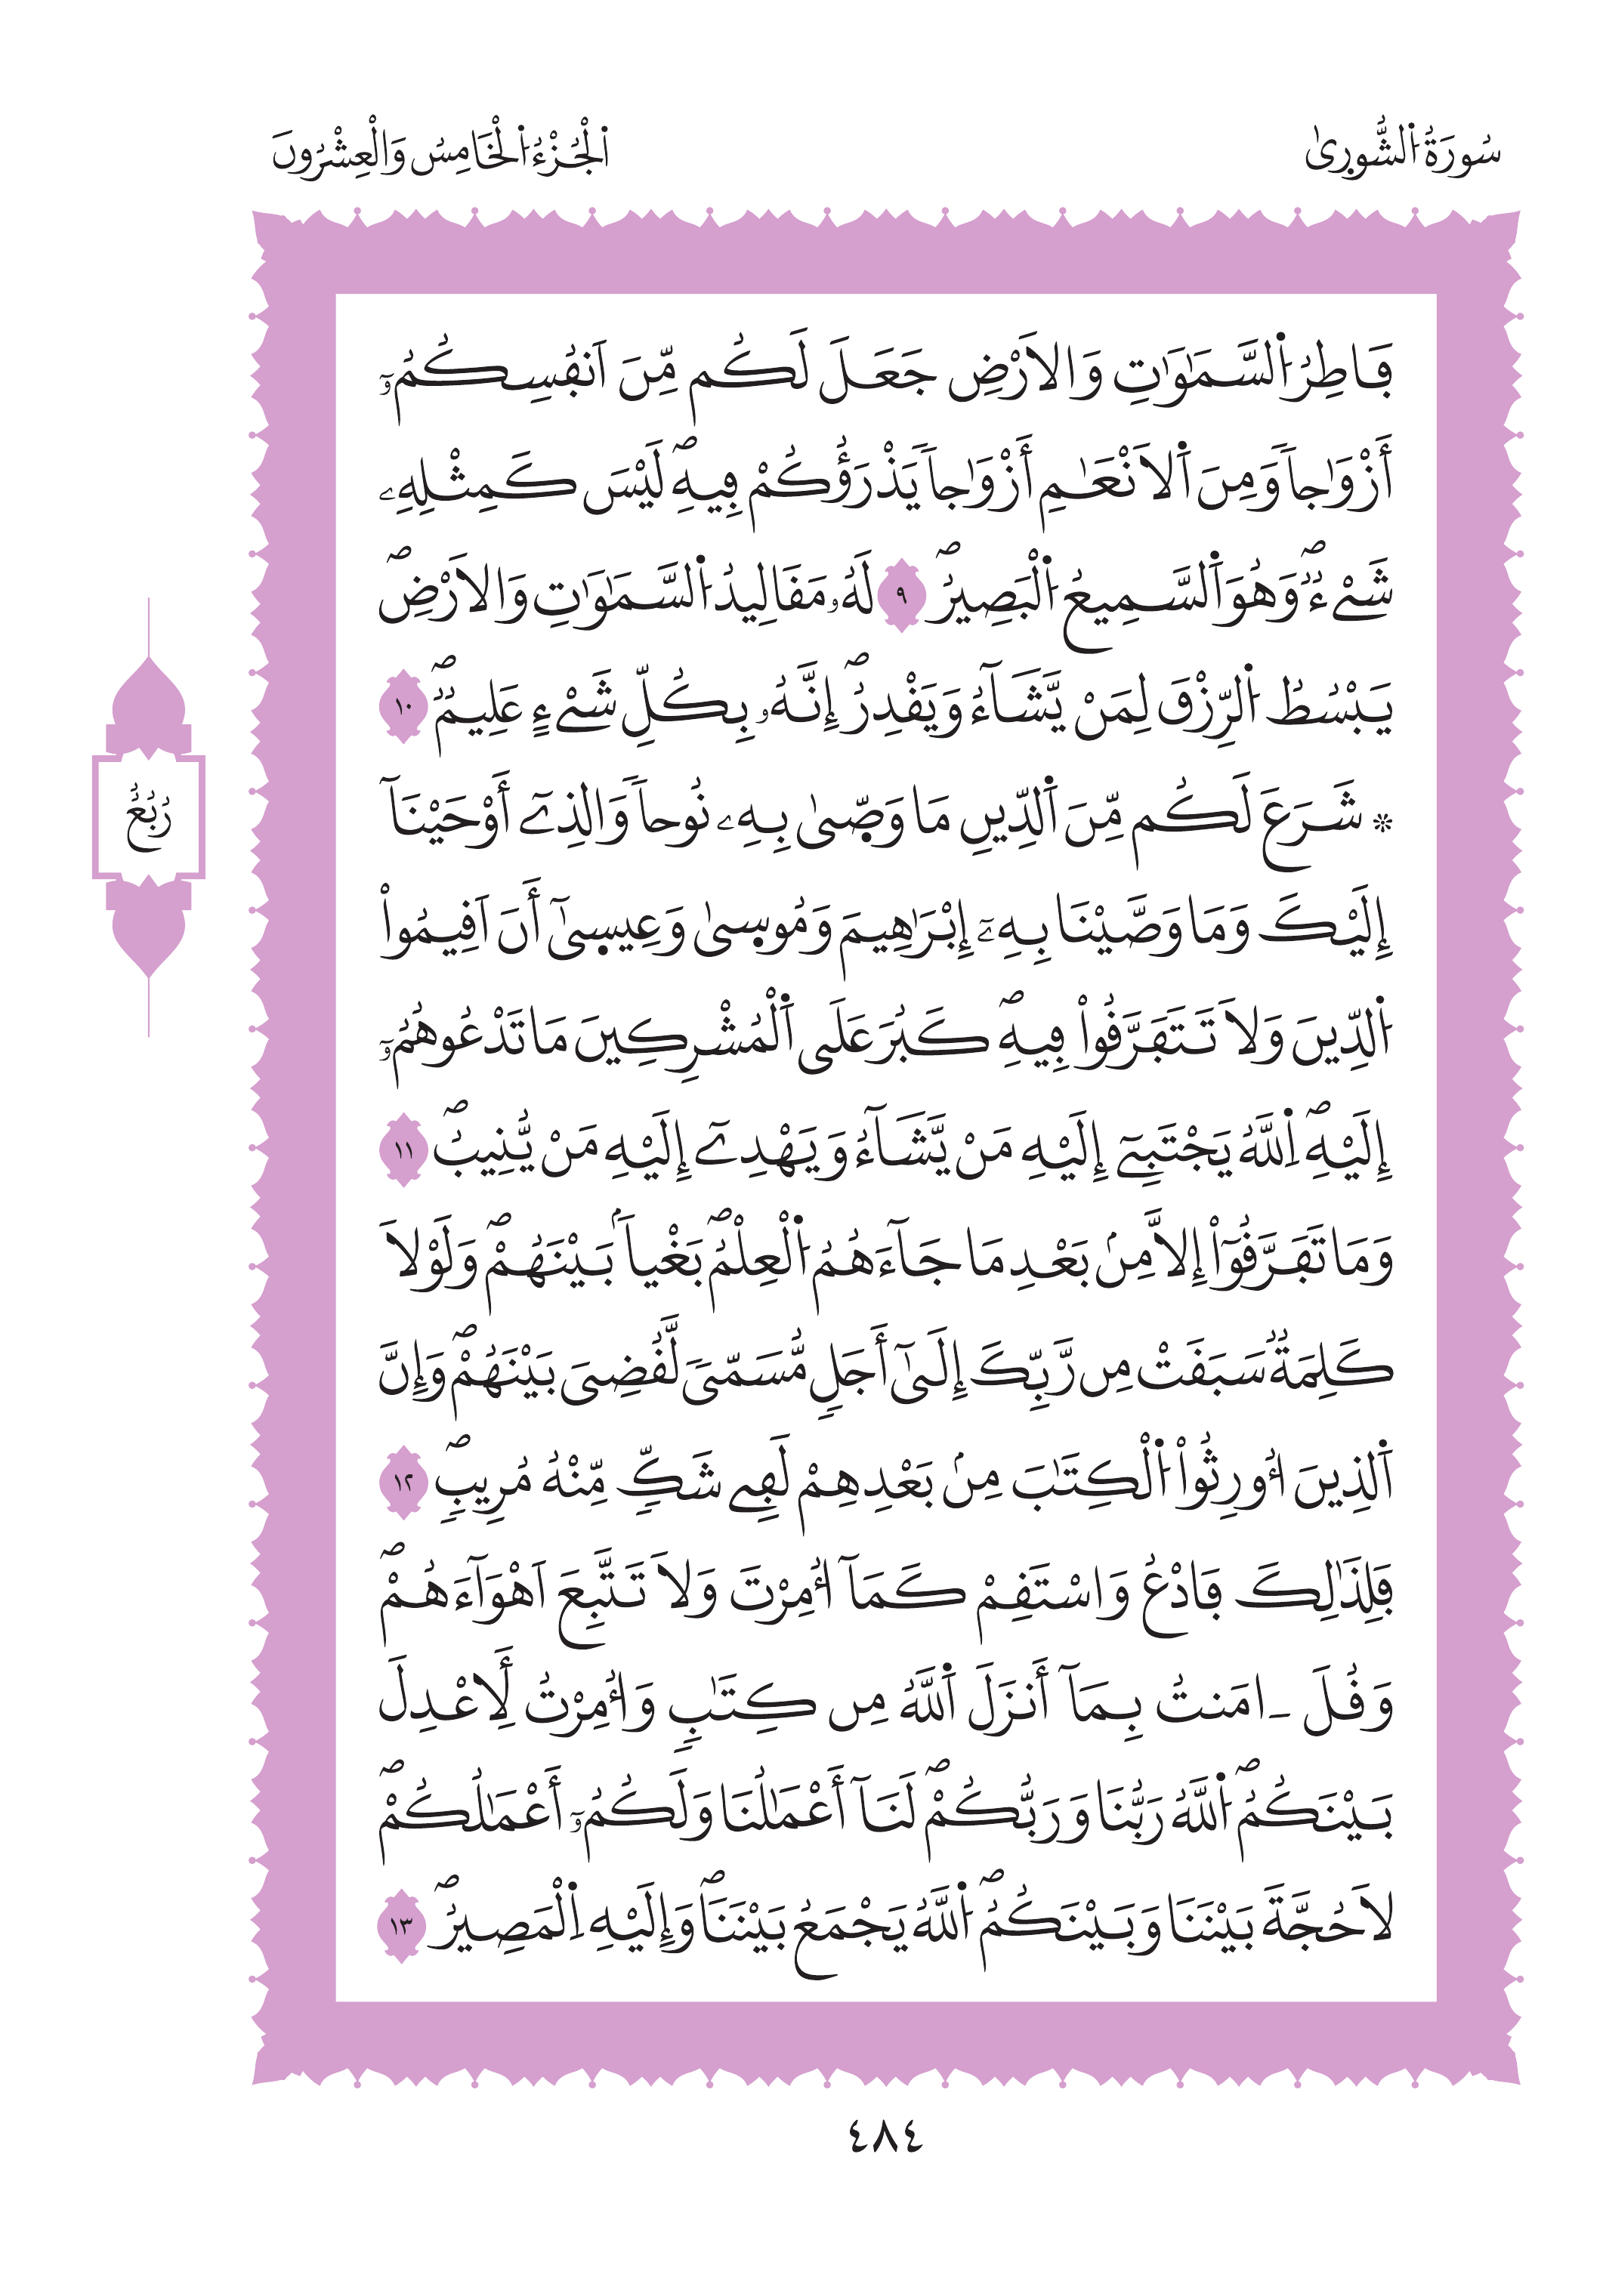 سُورَةُ اُ۬لشُّور۪يٰ
اَ۬لْجُزْءُ اُ۬لْخَامِسُ وَالْعِشْرُونَ
فَاطِرُ اُ۬لسَّمَٰوَٰتِ وَالَارْضِ جَعَلَ لَكُم مِّنَ اَنفُسِكُمُۥٓ
أَزْوَٰجاٗ وَمِنَ اَ۬لَانْعَٰمِ أَزْوَٰجاٗ يَذْرَؤُكُمْ فِيهِۖ لَيْسَ كَمِثْلِهِۦ
شَےْءٞۖ وَهُوَ اَ۬لسَّمِيعُ اُ۬لْبَصِيرُۖ ٩ لَهُۥ مَقَالِيدُ اُ۬لسَّمَٰوَٰتِ وَالَارْضِۖ
يَبْسُطُ اُ۬لرِّزْقَ لِمَنْ يَّشَآءُ وَيَقْدِرُۖ إِنَّهُۥ بِكُلِّ شَےْءٍ عَلِيمٞۖ ١٠
۞ شَرَعَ لَكُم مِّنَ اَ۬لدِّينِ مَا وَصّ۪يٰ بِهِۦ نُوحاٗ وَالذِےٓ أَوْحَيْنَآ
إِلَيْكَ وَمَا وَصَّيْنَا بِهِۦٓ إِبْرَٰهِيمَ وَمُوس۪يٰ وَعِيس۪يٰٓ أَنَ اَقِيمُواْ
اُ۬لدِّينَ وَلَا تَتَفَرَّقُواْ فِيهِۖ كَبُرَ عَلَي اَ۬لْمُشْرِكِينَ مَا تَدْعُوهُمُۥٓ
إِلَيْهِۖ اِ۬للَّهُ يَجْتَبِےٓ إِلَيْهِ مَنْ يَّشَآءُ وَيَهْدِےٓ إِلَيْهِ مَنْ يُّنِيبُۖ ١١
وَمَا تَفَرَّقُوٓاْ إِلَّا مِنۢ بَعْدِ مَا جَآءَهُمُ اُ۬لْعِلْمُۖ بَغْياَۢ بَيْنَهُمْۖ وَلَوْلَا
كَلِمَةٞ سَبَقَتْ مِن رَّبِّكَ إِلَيٰٓ أَجَلٖ مُّسَمّيٗ لَّقُضِيَ بَيْنَهُمْۖ وَإِنَّ
اَ۬لذِينَ أُورِثُواْ اُ۬لْكِتَٰبَ مِنۢ بَعْدِهِمْ لَفِے شَكّٖ مِّنْهُ مُرِيبٖۖ ١٢
فَلِذَٰلِكَ فَادْعُ وَاسْتَقِمْ كَمَآ أُمِرْتَ وَلَا تَتَّبِعَ اَهْوَآءَهُمْۖ
وَقُلَ ـ اٰمَنتُ بِمَآ أَنزَلَ اَ۬للَّهُ مِن كِتَٰبٖ وَأُمِرْتُ لِأَعْدِلَ
بَيْنَكُمُۖ اُ۬للَّهُ رَبُّنَا وَرَبُّكُمْۖ لَنَآ أَعْمَٰلُنَا وَلَكُمُۥٓ أَعْمَٰلُكُمْۖ
لَا حُجَّةَ بَيْنَنَا وَبَيْنَكُمُۖ اُ۬للَّهُ يَجْمَعُ بَيْنَنَاۖ وَإِلَيْهِ اِ۬لْمَصِيرُۖ ١٣
رُبُعُ
٤٨٤